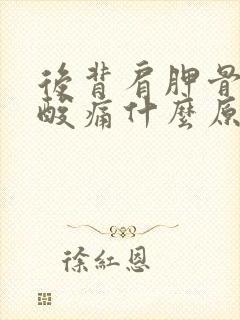 後背肩胛骨
酸痛什麼原
徐紅恩